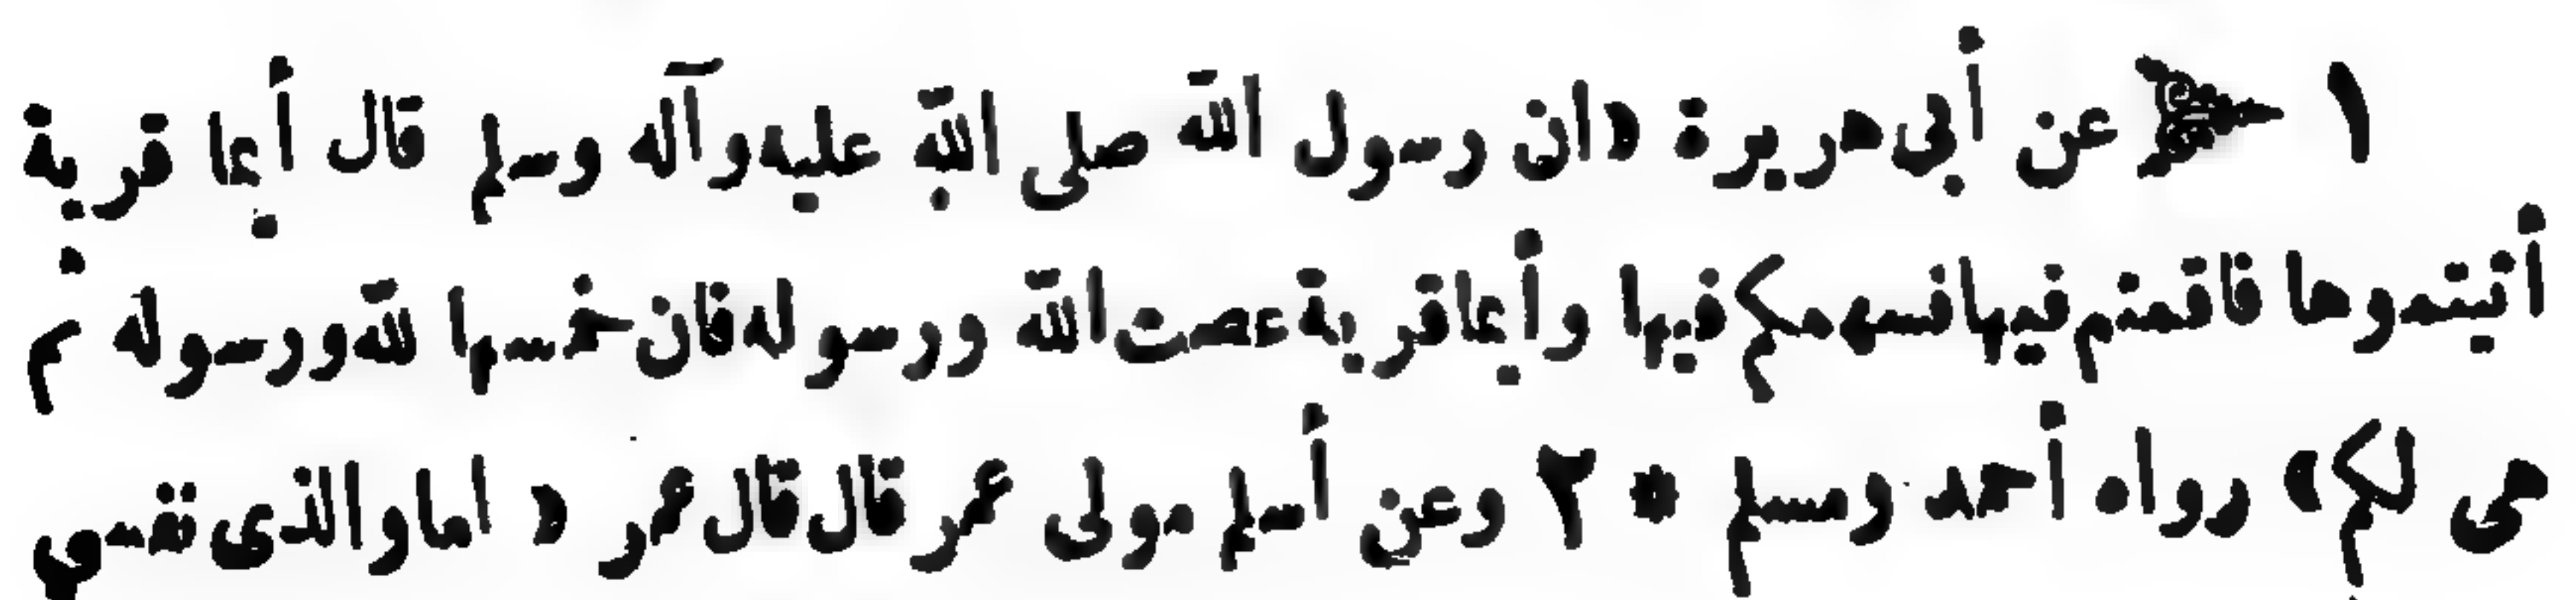 ١ عن أبى هريرة «ان رسول الله صلى الله عليه وآله وسلم قال أيما قرية
أتيتموها فاقمتم فيها فسهمكم فيها وأيما قرية عصت الله ورسوله فان خمسها لله ورسوله ثم
هى لكم» رواه أحمد ومسلم * ٢ وعن أسلم مولى عمر قال قال عمر « اما والذى نفسي